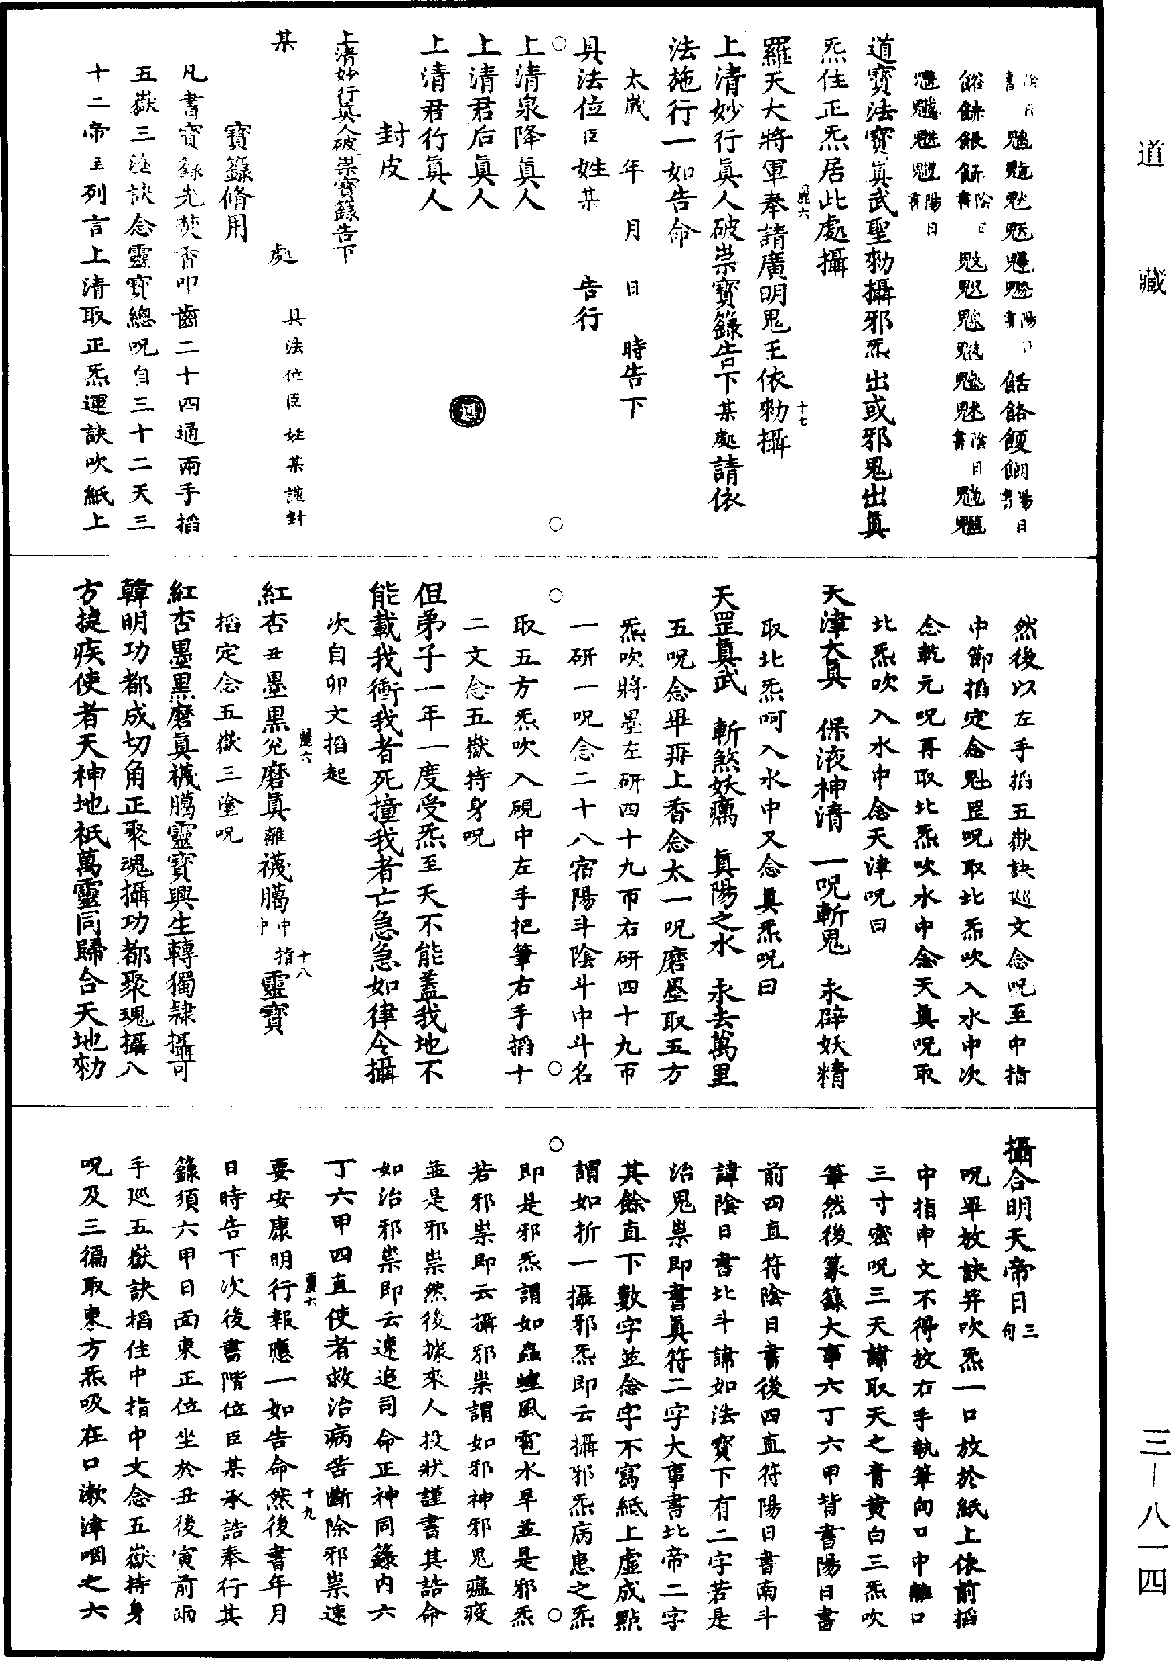 道藏
三—八一四
道寶法寶真武聖勑攝邪炁出或邪鬼出真
炁住正炁居此處攝
羅天大將軍奉請廣明鬼王依勑攝
上清妙行真人破祟寶籙告下某處請依
法施行一如告命
太歲 年 月 日 時告下
具法位臣姓某 告行
上清泉降真人
上清君后真人
上清君行真人
封皮
上清妙行真人破祟寶籙告下
某 處 具法位臣姓某謹封
寶籙脩用
凡書寶籙先焚香叩齒二十四通兩手掐
五嶽三塗訣念靈寶總呪自三十二天三
十二帝至列言上清取正炁運訣吹紙上
然後以左手掐五嶽訣巡文念呪至中指
中節掐定念魁罡呪取北炁吹入水中次
念乾元呪再取北炁吹水中念天真呪取
北炁吹入水中念天津呪曰
天津大真 保液神清 一呪斬鬼 永辟妖精
取北炁呵入水中又念真炁呪曰
天罡真武 斬煞妖癘 真陽之水 永去萬里
五呪念畢再上香念太一呪磨墨取五方
炁吹將墨左研四十九帀右研四十九帀
一研一呪念二十八宿陽斗陰斗中斗名
取五方炁吹入硯中左手把筆右手掐十
二文念五嶽持身呪
但弟子一年一度受炁至天不能蓋我地不
能載我衝我者死撞我者亡急急如律令攝
次自卯文掐起
紅杏丑墨黑兊磨真離襪䐽中指靈寶
掐定念五嶽三塗呪
紅杏墨黑磨真襪䐽靈寶興生轉獨隸攝可
韓明功都成切角正聚魂攝功都聚瑰攝八
方捷疾使者天神地祇萬靈同歸合天地勑
攝合明天帝日三句
呪畢放訣筭吹炁一口放於紙上依前掐
中指中文不得放右手執筆向口中離口
三寸密呪三天諱取天之青黃白三炁吹
筆然後篆籙大事六丁六甲皆書陽日書
前四直符陰日書後四直符陽日書南斗
諱陰日書北斗諱如法寶下有二字若是
治鬼祟即書真符二字大事書北帝二字
其餘直下數字並念字不寫紙上虛成點
謂如折一攝邪炁即云攝邪炁病患之炁
即是邪炁謂如蟲蝗風雹水旱並是邪炁
若邪祟即云攝邪祟謂如邪神邪鬼瘟疫
並是邪祟然後據來人投狀謹書其誥命
如治邪祟即云速追司命正神同籙內六
丁六甲四直使者救治病苦斷除邪祟速
要安康明行報應一如告命然後書年月
日時告下次後書階位臣某承誥奉行其
籙須六甲日面東正位坐於丑後寅前兩
手巡五嶽訣掐住中指中文念五嶽持身
呪及三徧取東方炁吸在口漱津咽之六